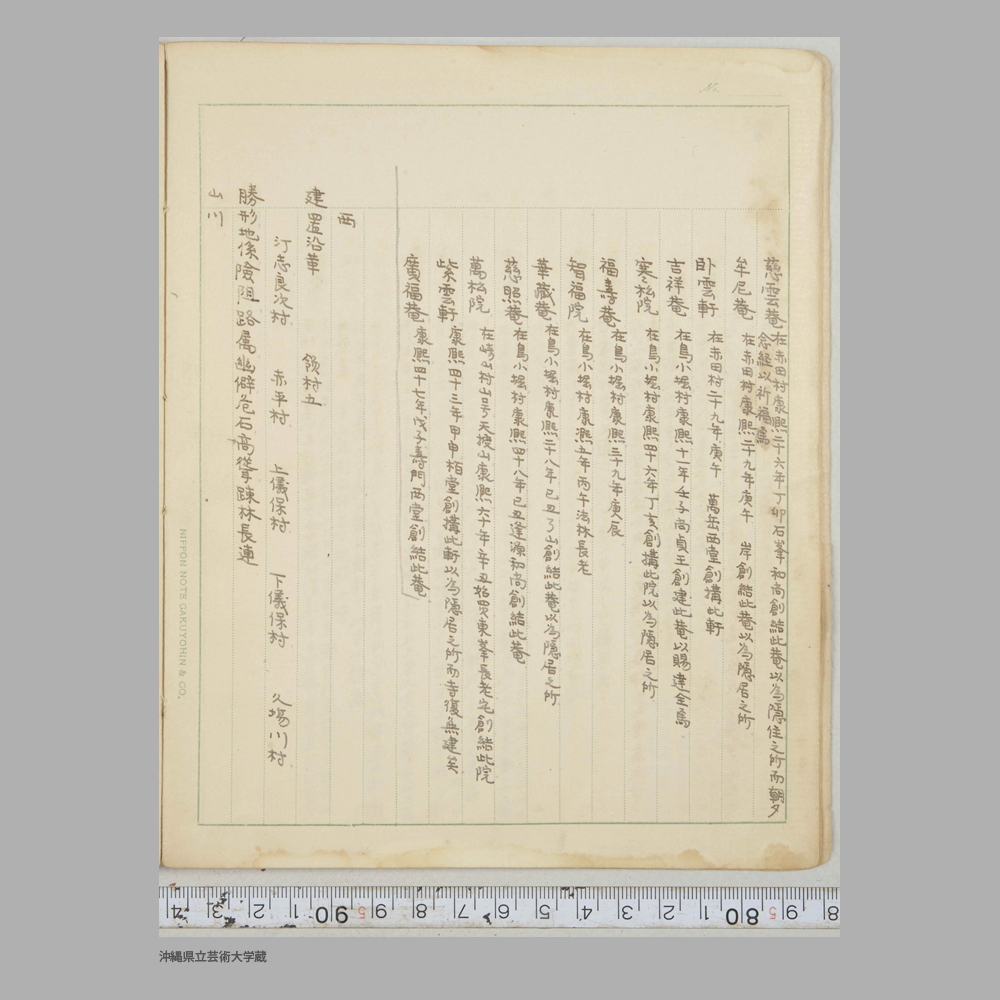 慈雲菴 在赤田村康熙二十六年丁卯石峯和尚創結此菴以為隱住之所而朝夕
念経以祈福焉
牟尼菴 在赤田村康熙二十九年庚午 岸創結此菴以為隱居之所
卧雲軒 在赤田村二十九年庚午 萬岳西堂創搆此軒
吉祥菴 在鳥小堀村康熙十一年壬子尚貞王創建此菴以賜建全焉
寒松院 在鳥小堀村康熙四十六年丁亥創搆此院以為隱居之所
福壽菴 在鳥小堀村康熙三十九年庚辰
智福院 在鳥小堀村康熙五年丙午法林長老
華藏菴 在鳥小堀村康熙二十八年己丑了山創結此菴以為隱居之所
慈照菴 在鳥小堀村康熙四十八年己丑逢源和尚創結此菴
萬松院 在崎山村山号天梭山康熙六十年辛丑始買東峯長老宅創結此院
紫雲軒 康熙四十三年甲申栢堂創搆此軒以為隱居之所而寺復無建矣
廣福菴 康熙四十七年戊子壽門西堂創結此菴
西
建置沿革 領村五
汀志良次村 赤平村 上儀保村 下儀保村 久場川村
勝形地係險阻路属幽僻危石高聳踈林長連
山川
No.
NIPPON NOTE GAKUYOHIN & CO.
4 3 2 1 90 9 8 7 6 5 4 3 2 1 80 9 8
沖縄県立芸術大学蔵